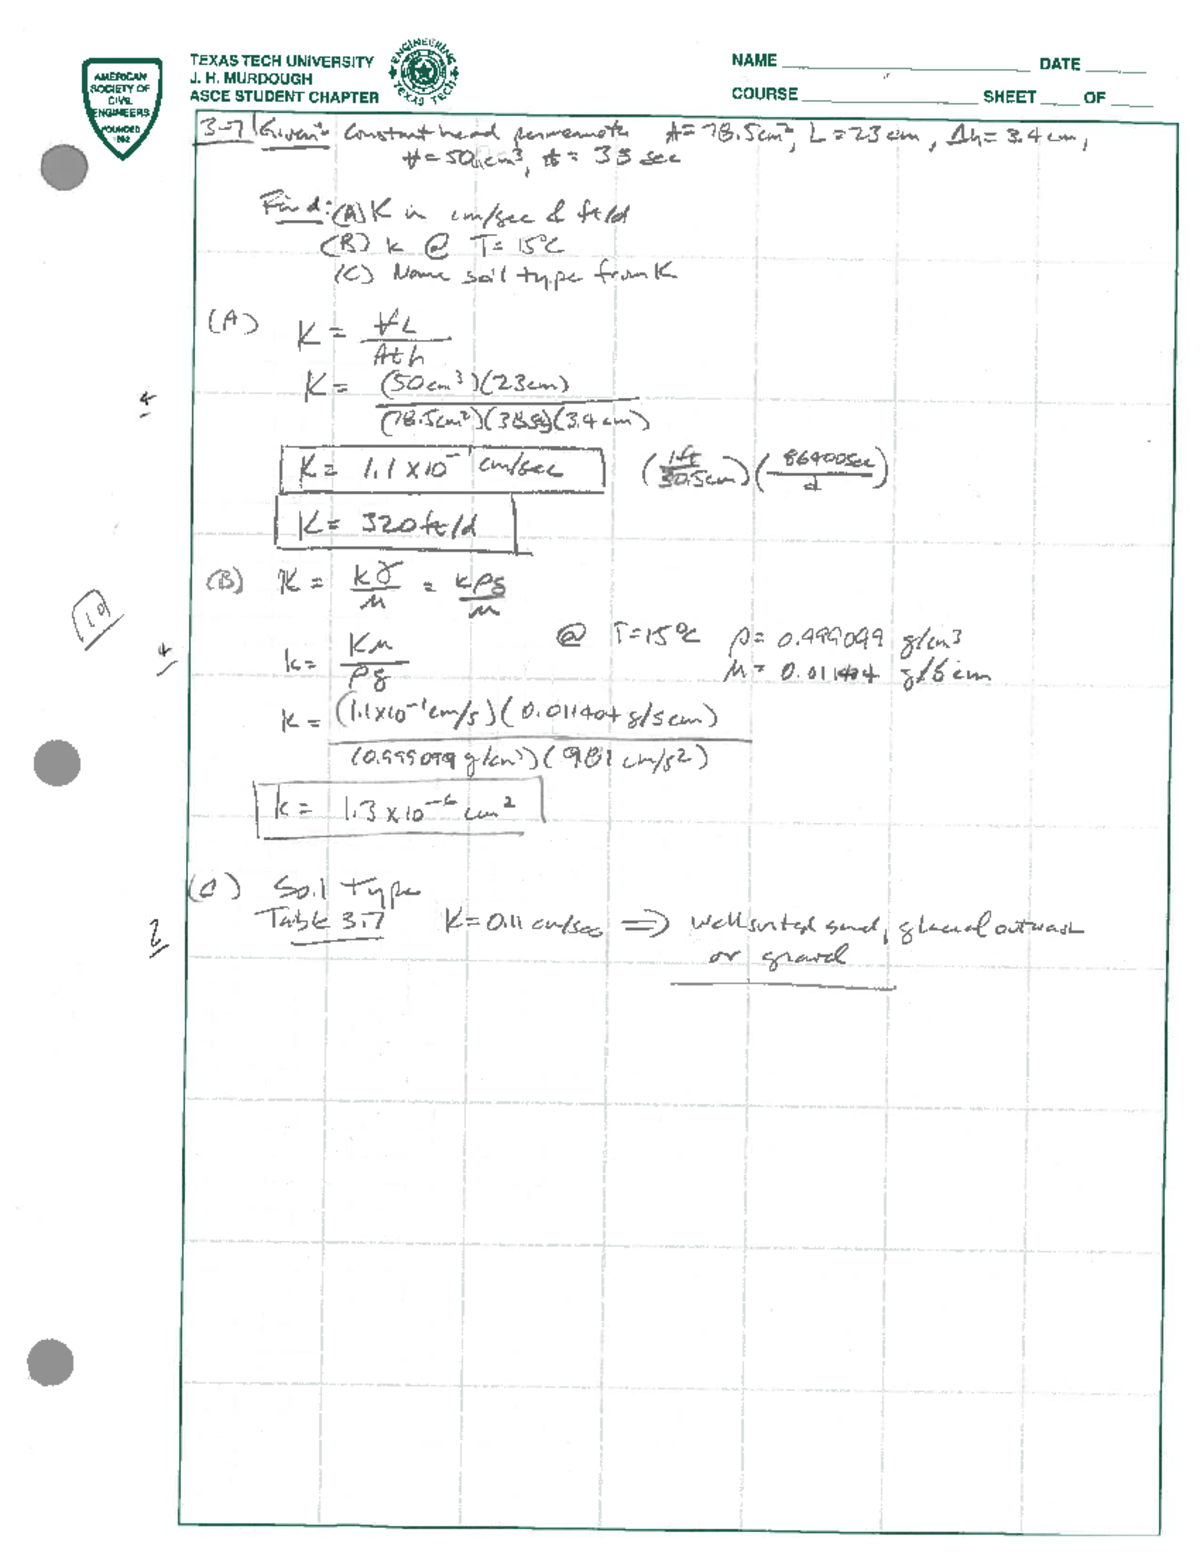 AMERICAN
SOCIETY OF
CIVIL
ENGINEERS
FOUNDED
1852
TEXAS TECH UNIVERSITY
J. H. MURDOUGH
ASCE STUDENT CHAPTER
ENGINEERING
TEXAS TECH
NAME
DATE
COURSE
SHEET OF
3-7 Given: Constant head A = 78.5cm², L = 23 cm, Δh = 3.4 cm,
V = 50 cm³, t = 38 sec
Find: (A) K in cm/sec & ft/d
(B) k @ T = 15°C
(C) Name soil type from K
(A) K = VL / Ath
4
K = (50cm³)(23cm) / (78.5cm²)(38s)(3.4cm)
K = 1.1 x 10⁻¹ cm/sec (1ft / 30.5cm)(86400sec / d)
K = 320 ft/d
10
(B) K = kγ / μ = kρg / μ
4
k = Kμ / ρg @ T = 15°C ρ = 0.999099 g/cm³
μ = 0.011404 g/s cm
k = (1.1x10⁻¹ cm/s)(0.011404 g/s cm) / (0.999099 g/cm³)(981 cm/s²)
k = 1.3 x 10⁻⁶ cm²
(C) Soil Type
2
Table 3.7 K = 0.11 cm/sec ⇒ well sorted sand, glacial outwash
or gravel